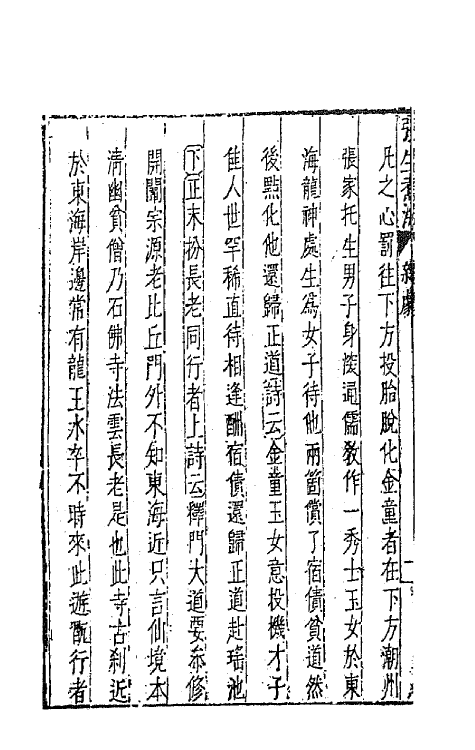 張生煮海 雜劇
凡之心罰往下方投胎脫化金童者在下方潮州
張家托生男子身深通儒敎作一秀士玉女於東
海龍神處生爲女子待他兩箇償了宿債貧道然
後㸃化他還歸正道詩云金童玉女意投機才子
佳人世罕稀直待相逢酬宿債還歸正道赴瑤池
下正末扮長老同行者上詩云釋門大道要叅修
開闡宗源老比丘門外不知東海近只言仙境本
淸幽貧僧乃石佛寺法雲長老是也此寺古刹近
於東海岸邊常有龍王水卒不時來此遊翫行者